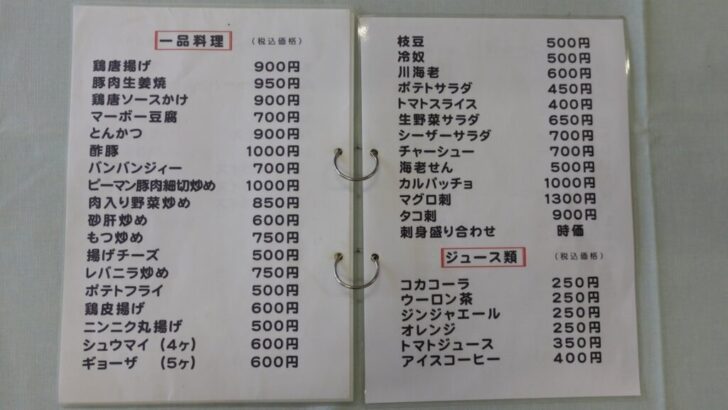 一品料理 （税込価格）
鶏唐揚げ 900円
豚肉生姜焼 950円
鶏唐ソースかけ 900円
マーボー豆腐 700円
とんかつ 900円
酢豚 1000円
バンバンジィー 700円
ピーマン豚肉細切炒め 1000円
肉入り野菜炒め 850円
砂肝炒め 600円
もつ炒め 750円
揚げチーズ 500円
レバニラ炒め 750円
ポテトフライ 500円
鶏皮揚げ 600円
ニンニク丸揚げ 500円
シュウマイ （4ヶ） 600円
ギョーザ （5ヶ） 600円
枝豆 500円
冷奴 500円
川海老 600円
ポテトサラダ 450円
トマトスライス 400円
生野菜サラダ 650円
シーザーサラダ 700円
チャーシュー 700円
海老せん 500円
カルパッチョ 1000円
マグロ刺 1300円
タコ刺 900円
刺身盛り合わせ 時価
ジュース類 （税込価格）
コカコーラ 250円
ウーロン茶 250円
ジンジャエール 250円
オレンジ 250円
トマトジュース 350円
アイスコーヒー 400円